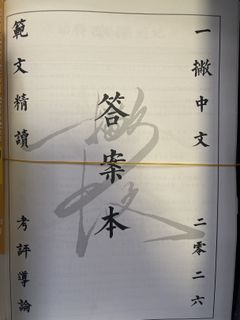 一撇中文 二零二六
答案本
範文精讀 考評導論